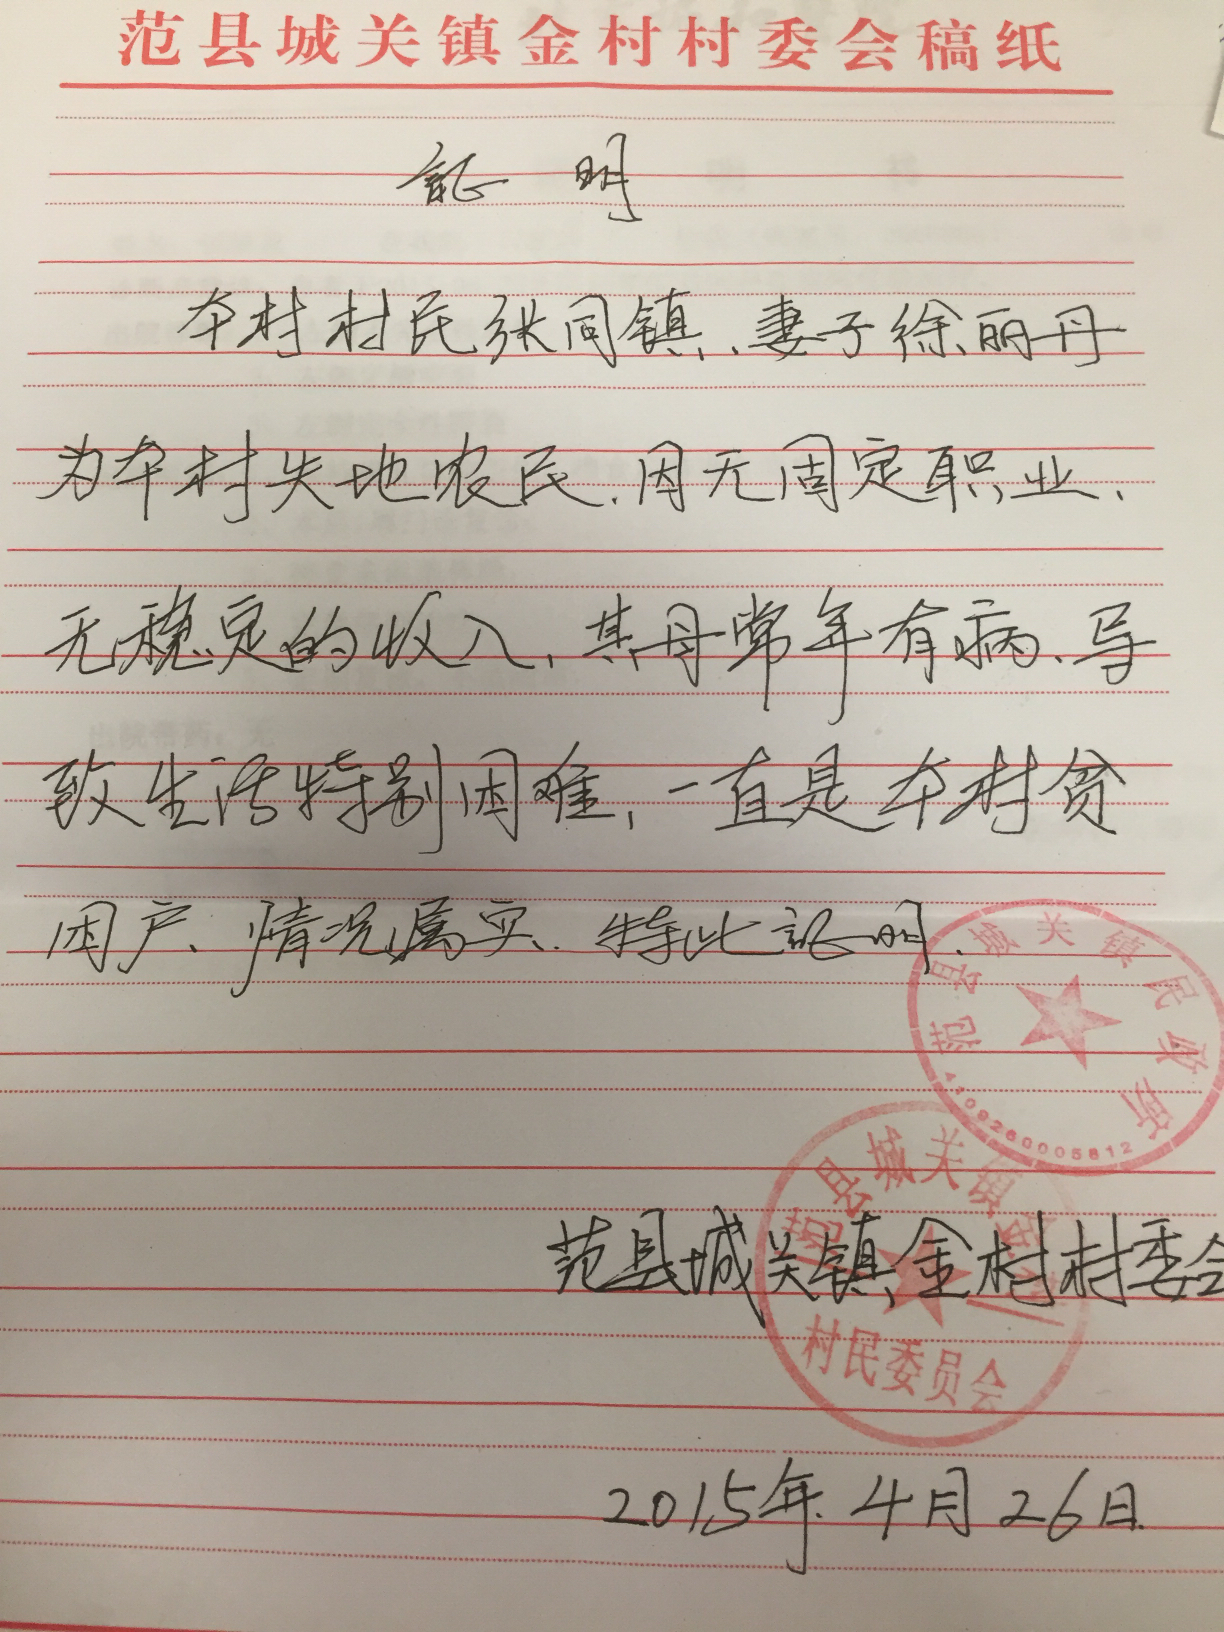 范县城关镇金村村委会稿纸
証明
本村村民张同镇、妻子徐丽丹
为本村失地农民.因无固定职业、
无稳定的收入、其母常年有病、导
致生活特别困难,一直是本村贫
困户、情况属实.特此証明.
范县城关镇民政所
4109260005812
范县城关镇金村
村民委员会
范县城关镇金村村委会
2015年4月26日